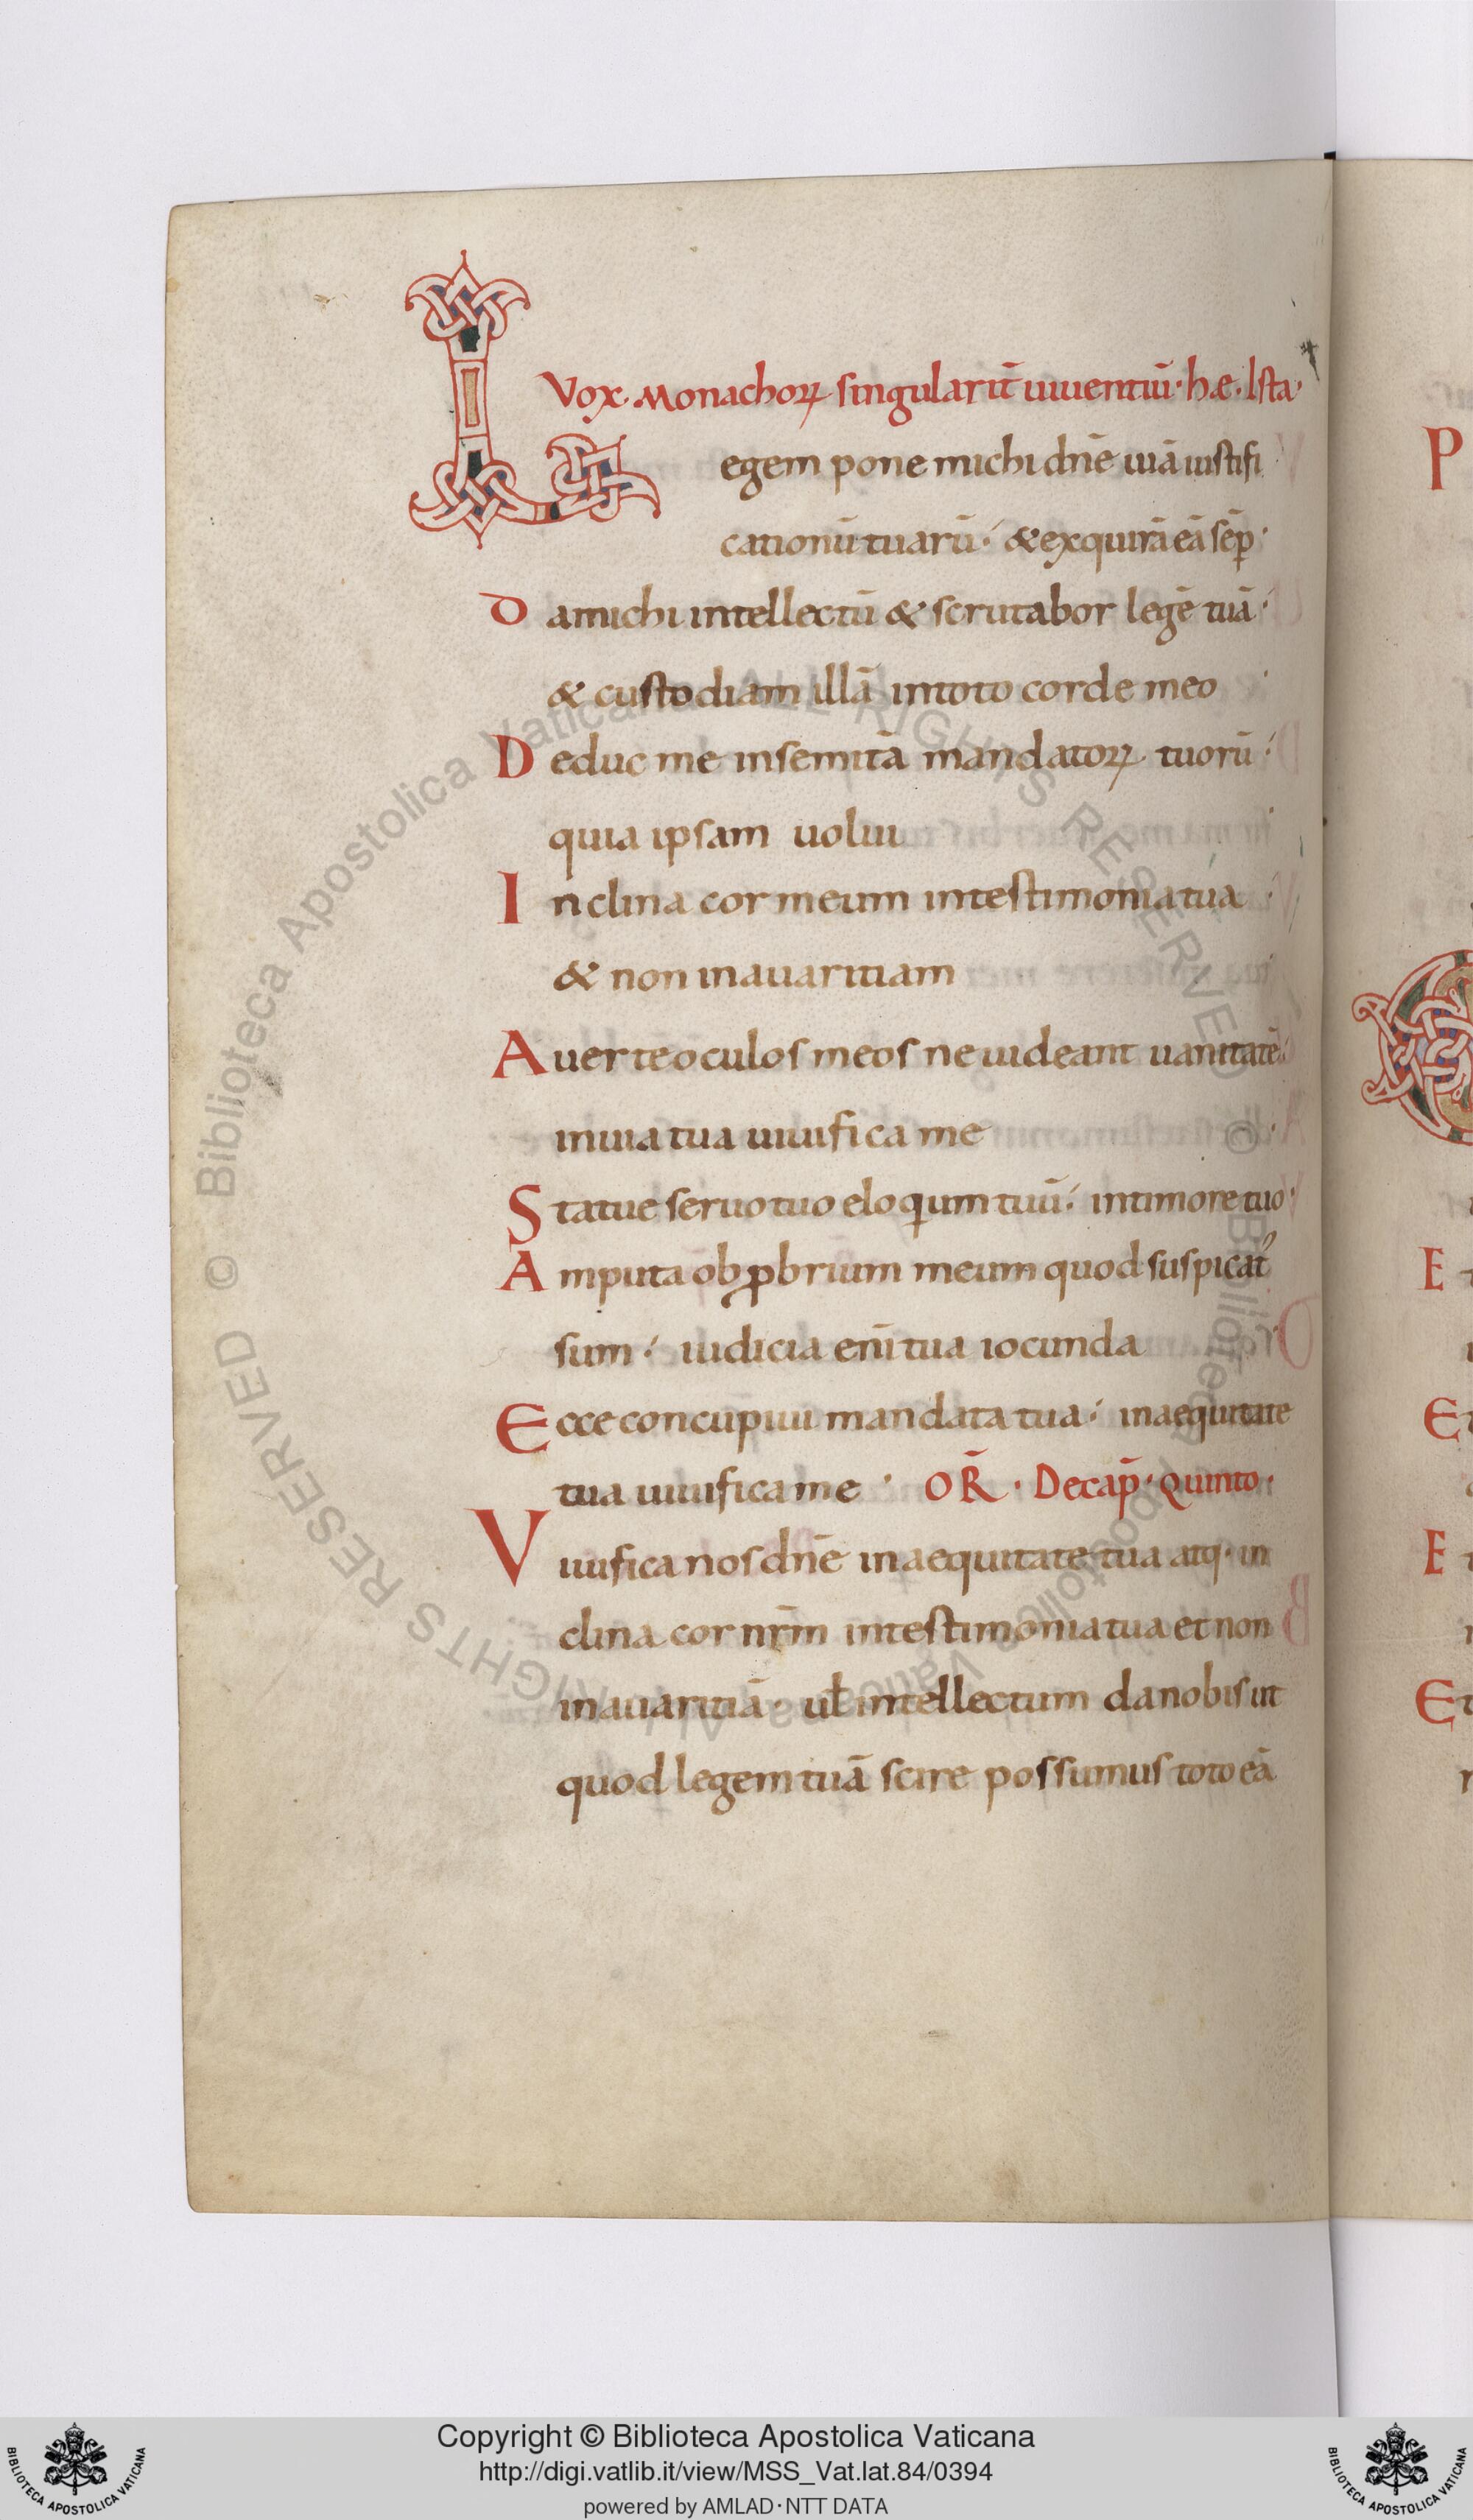 Vox. Monachoꝝ singularit̄ uiuentiū· hæ· Ista·
Legem pone michi dn̄e uiā iustifi
cationū tuarū· & exquirā eā sēp·
Da michi intellectū & scrutabor legē tuā·
& custodiam illā in toto corde meo
Deduc me in semitā mandatoꝝ tuorū·
quia ipsam uolui
Inclina cor meum in testimonia tua
& non in auaritiam
Auerte oculos meos ne uideant uanitatē
in uia tua uiuifica me
Statue seruo tuo eloquium tuū· in timore tuo·
Amputa obꝓbrium meum quod suspicat᷒
sum· iudicia enī tua iocunda
Ecce concupiui mandata tua· in aequitate
tua uiuifica me · OR̄ · De cap̄ · Quinto·
Viuifica nos dn̄e in aequitate tua atq· in
clina cor nr̄m in testimonia tua et non
in auaritiā· ul̄ intellectum da nobis ut
quod legem tuā scire possumus toto eā
P
E
E
E
E
© Biblioteca Apostolica Vaticana ALL RIGHTS RESERVED © Biblioteca Apostolica Vaticana ALL RIGHTS RESERVED
Copyright © Biblioteca Apostolica Vaticana
http://digi.vatlib.it/view/MSS_Vat.lat.84/0394
powered by AMLAD·NTT DATA
BIBLIOTECA APOSTOLICA VATICANA
BIBLIOTECA APOSTOLICA VATICANA